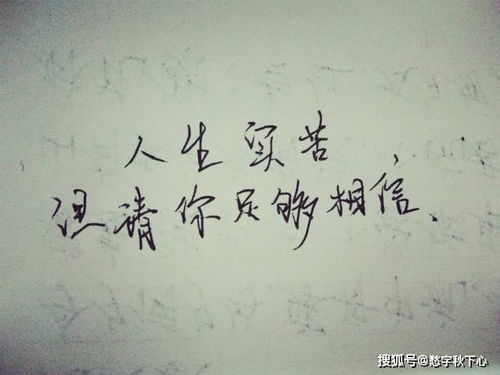 人生实苦
但请你足够相信、
搜狐号@愁字秋下心